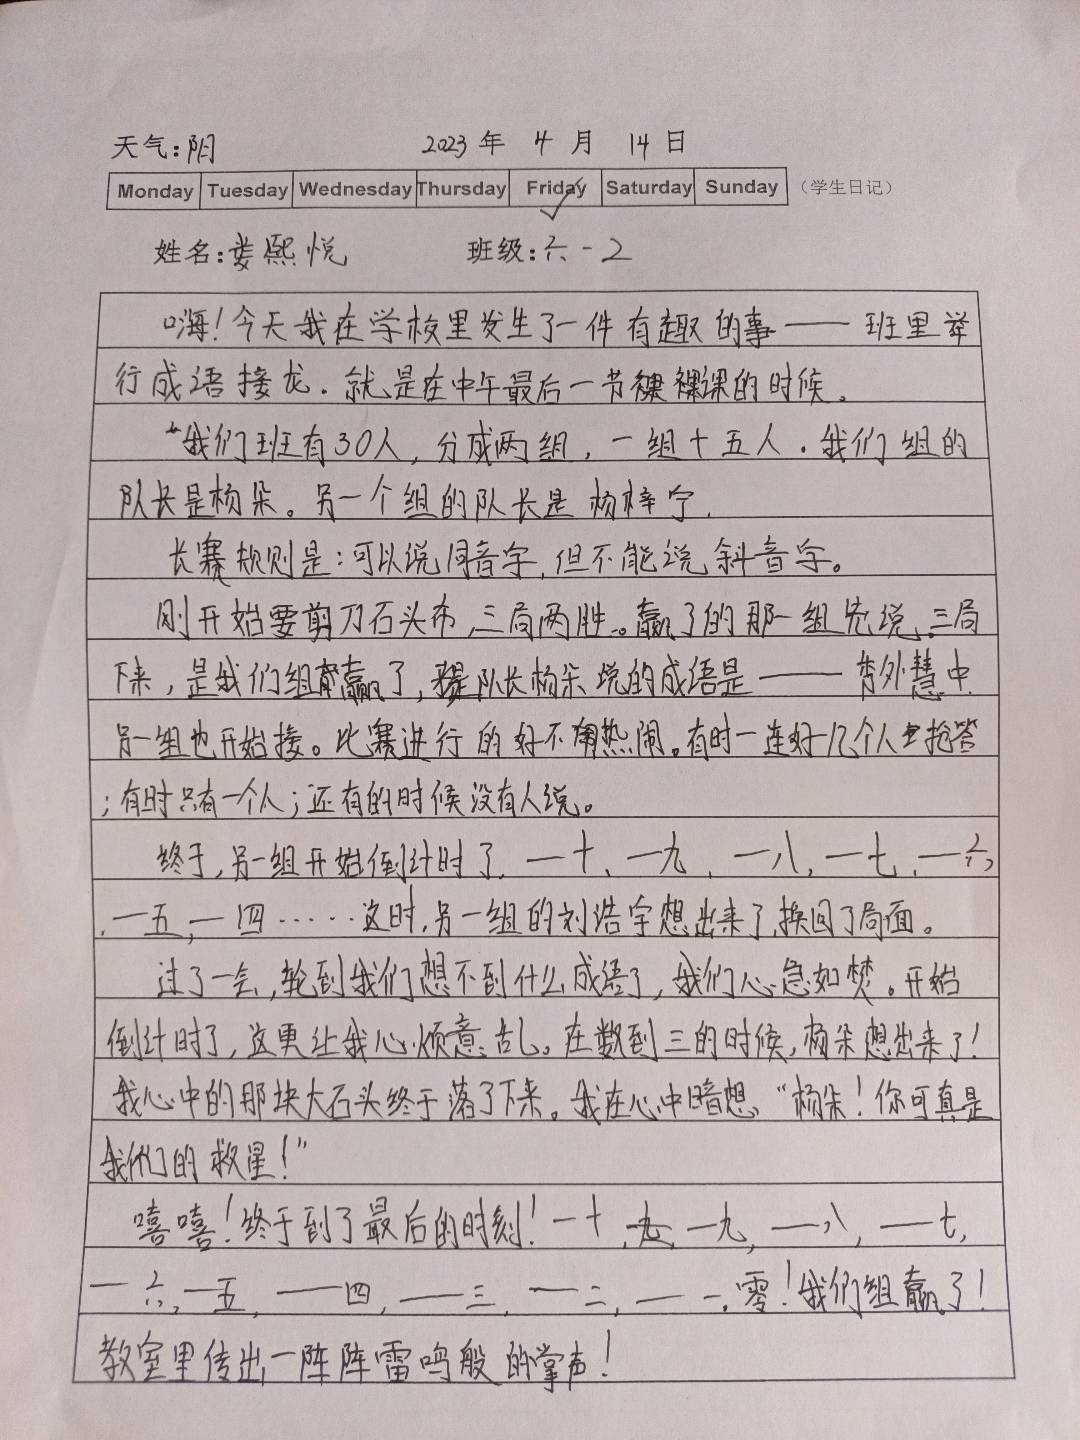 天气:阴 2023年 4月 14日
Monday Tuesday Wednesday Thursday Friday Saturday Sunday (学生日记)
姓名:娄熙悦 班级:六-2
嗨!今天我在学校里发生了一件有趣的事——班里举
行成语接龙.就是在中午最后一节课的时候。
"我们班有30人,分成两组,一组十五人.我们组的
队长是杨朵。另一个组的队长是杨梓宁.
长赛规则是:可以说同音字,但不能说斜音字。
刚开始要剪刀石头布,三局两胜。赢了的那一组先说,三局
下来,是我们组赢了,队长杨朵说的成语是——秀外慧中
另一组也开始接。比赛进行的好不热闹。有时一连好几个人抢答
;有时只有一个人;还有的时候没有人说。
终于,另一组开始倒计时了,—十、—九,—八,—七,—六,
.—五,—四……这时,另一组的刘浩宇想出来了,换回了局面。
过了一会,轮到我们想不到什么成语了,我们心急如焚。开始
倒计时了,这更让我心烦意乱。在数到三的时候,杨朵想出来了!
我心中的那块大石头终于落了下来。我在心中暗想、"杨朵!你可真是
我们的救星!"
嘻嘻!终于到了最后的时刻!—十,—九,—八,—七,
—六,—五,—四,—三,—二,—一.零!我们组赢了!
教室里传出一阵阵雷鸣般的掌声!